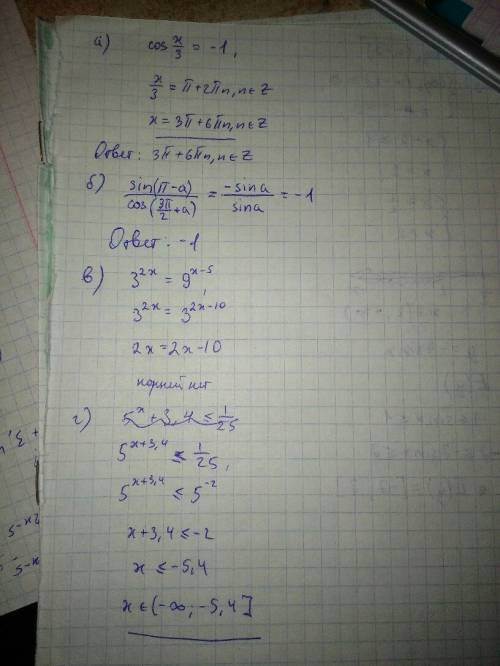 а) cos x/3 = -1,
x/3 = π+2πn, n∈Z
x = 3π+6πn, n∈Z
Ответ: 3π+6πn, n∈Z
б) sin(π-a)/cos(3π/2+a) = -sina/sina = -1
Ответ: -1
в) 3^2x = 9^x-5,
3^2x = 3^2x-10
2x = 2x-10
корней нет
г) 5^x+3,4 ≤ 1/25
5^x+3,4 ≤ 1/25,
5^x+3,4 ≤ 5^-2
x+3,4 ≤ -2
x ≤ -5,4
x ∈ (-∞; -5,4]